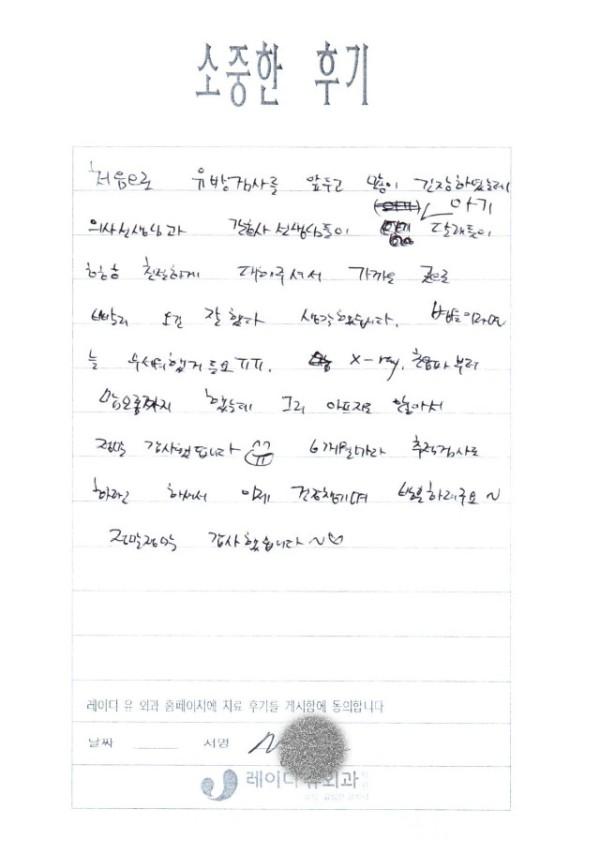 소중한 후기
처음으로 유방검사를 앞두고 많이 긴장하였는데
아기
의사선생님과 간호사 선생님들이 달래듯이
친절하게 대해주셔서 가까운 곳으로
오길 잘 했다 생각했습니다. 병원이라면
늘 무서워했거든요 ㅠㅠ. X-ray, 초음파 부터
맘모톰까지 했는데 그리 아프지도 않아서
정말 감사했습니다 6개월마다 추적검사도
하라고 하셔서 이제 건강챙기며 하려구요~
정말정말 감사했습니다~♡
레이디 유 외과 홈페이지에 치료 후기를 게시함에 동의합니다
날짜 서명
레이디유외과